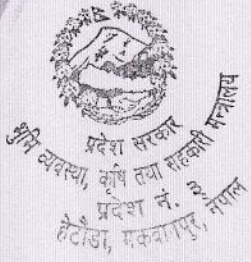 प्रदेश सरकार
भूमि व्यवस्था, कृषि तथा सहकारी मन्त्रालय
प्रदेश नं. ३
हेटौडा, मकवानपुर, नेपाल